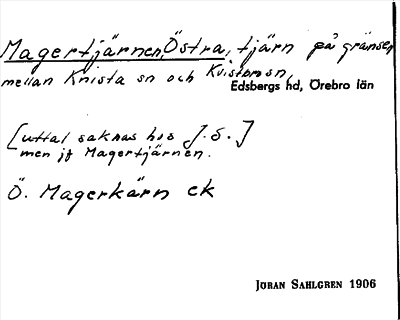 Magertjärnen, Östra, tjärn på gränsen
mellan Knista sn och Kvistbro sn,
Edsbergs hd, Örebro län
[uttal saknas hos J. S.]
men jf Magertjärnen.
Ö. Magerkärn ek
JÖRAN SAHLGREN 1906